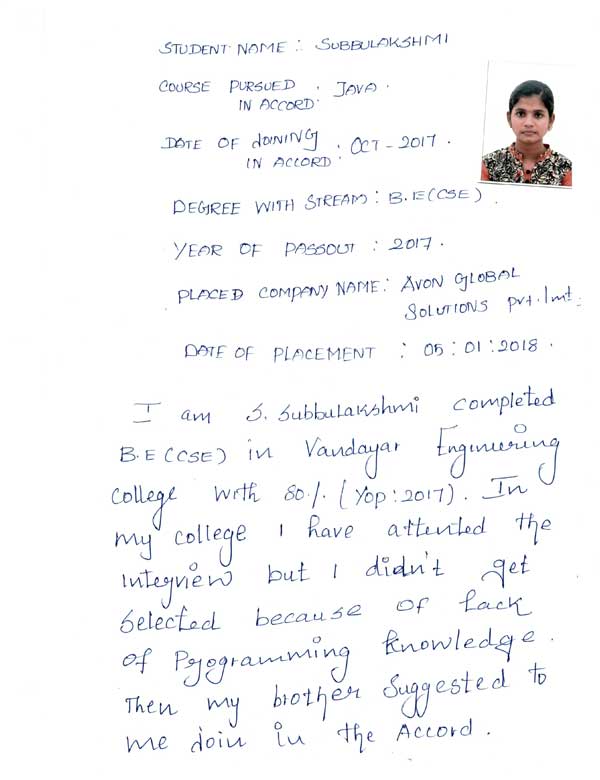 STUDENT NAME : SUBBULAKSHMI
COURSE PURSUED . JAVA .
IN ACCORD.
DATE OF JOINING . OCT - 2017 .
IN ACCORD.
DEGREE WITH STREAM : B.E(CSE) .
YEAR OF PASSOUT : 2017 .
PLACED COMPANY NAME : AVON GLOBAL
SOLUTIONS Pvt. lmt .
DATE OF PLACEMENT : 05 : 01 : 2018 .
I am S. Subbulakshmi completed
B.E (CSE) in Vandayar Engineering
College with 80 % (Yop : 2017) . In
my college I have attented the
Interview but I didn't get
Selected because of Lack
of Programming knowledge .
Then my brother Suggested to
me join in the Accord .